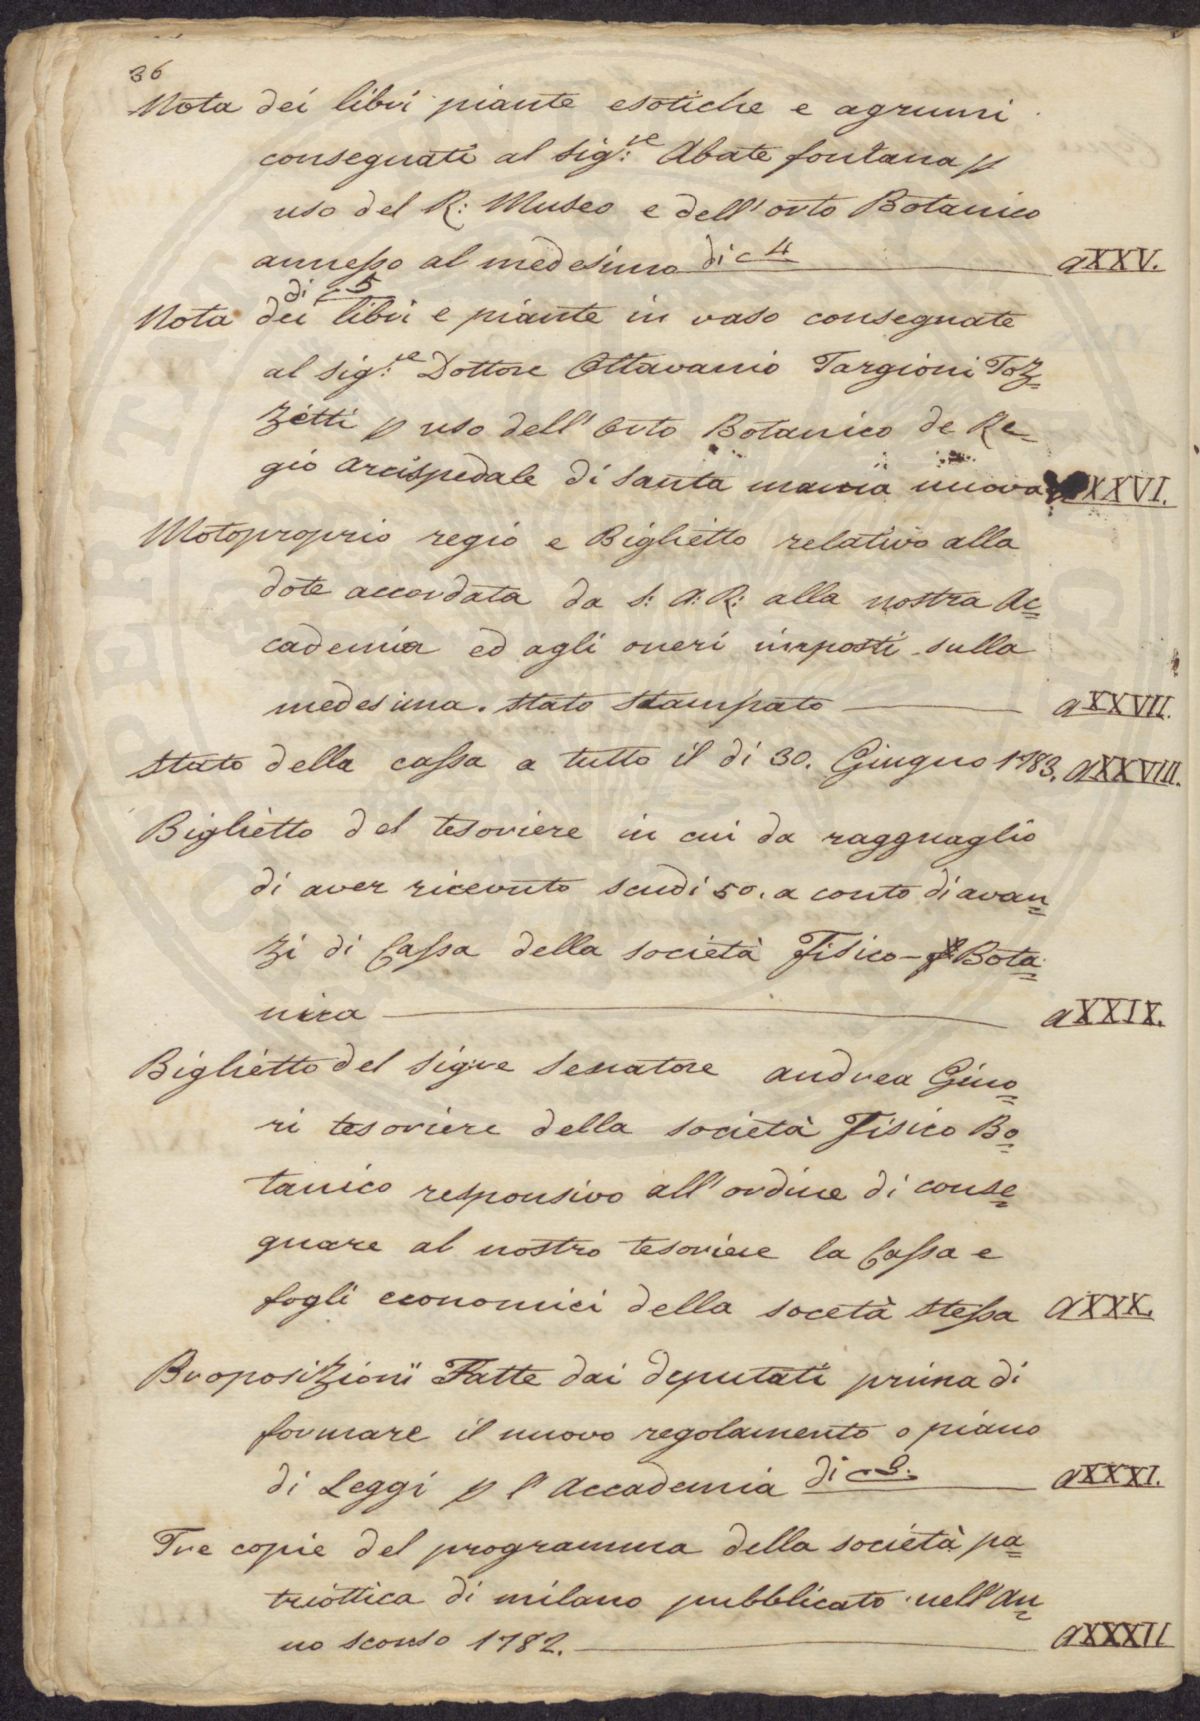 36
Nota dei libri piante esotiche e agrumi
consegnati al Sig:re Abate fontana p
uso del R: Museo e dell'orto Botanico
annesso al medesimo di c 4 aXXV.
di c 5
Nota dei libri e piante in vaso consegnate
al Sig:re Dottore Ottavanio Targioni Toz=
zetti p uso dell'Orto Botanico de Re=
gio arcispedale di santa maria nuova XXVI.
Motoproprio regio e Biglietto relativo alla
dote accordata da S: A: R: alla nostra Ac=
cademia ed agli oneri imposti sulla
medesima. stato stampato aXXVII.
Stato della cassa a tutto il di 30. Giugno 1783. aXXVIII.
Biglietto del tesoriere in cui da ragguaglio
di aver ricevuto scudi 50. a conto di avan=
zi di Cassa della società Fisico-Bota=
nica aXXIX.
Biglietto del Sigre Senatore andrea Gino=
ri tesoriere della società Fisico Bo=
tanico responsivo all'ordine di conse=
gnare al nostro tesoriere la Cassa e
fogli economici della socetà stessa aXXX.
Proposizioni Fatte dai deputati prima di
formare il nuovo regolamento o piano
di Leggi p l'Accademia di c 3. aXXXI.
Tre copie del programma della società pa=
triottica di milano pubblicato nell'An=
no scorso 1782. aXXXII